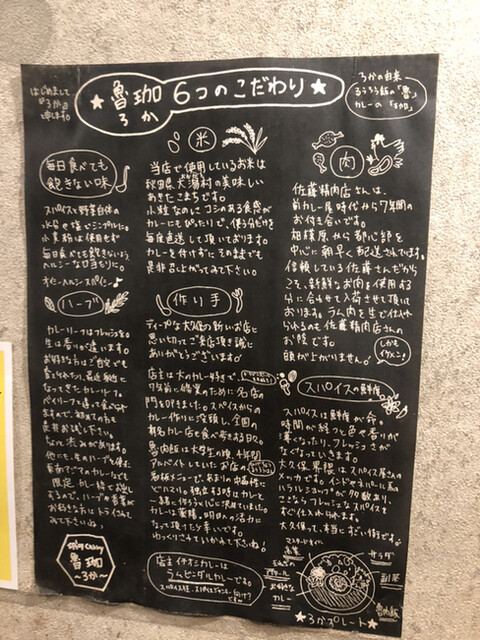 はじめまして
『ろか』
と申します
★ 魯珈 ろか 6つのこだわり ★
ろかの由来
るうろう飯の「魯」
カレーの「珈」
毎日食べても
飽きない味
スパイスと野菜自体の
小麦粉は使用せず
毎日食べても飽きないよう、
ヘルシーな口当たりに。
オイシイヘルシースパイシー♪
ハーブ
カレーリーフはフレッシュなものと
生は香りが違います。
お好きな方はご自宅でも
育てられたり、最近級に
なってきたカレーリーフ。
ベイリーフと違って食べられ
ますので、初めての方も
是非お試し下さい。
限定カレー様にお出し
するので、ハーブや香菜が
お好きな方はトライして
みて下さいね♪
SPICY Curry
魯珈
~ろか~
米
当店で使用しているお米は
秋田県大潟村の美味しい
あきたこまちです。
小粒なのにコシのある食感が
カレーにもぴったりで、僕ら自らが
毎度直送して頂いております。
カレーを付けずにそのままでも
是非召し上がってみて下さい。
作り手
ディープな大久保の新しいお店に
思い切ってご来店頂き誠に
ありがとうございます。
店主は大のカレー好きで、
7年前に修業のために名店の
門を叩きました。スパイスからの
カレー作りに没頭し、全国の
有名カレー店を食べ歩きする日々。
魯肉飯は大学生の頃、十年間
アルバイトしていたお店の
看板メニューで、あまりの中毒性に
ドはまり。独立する時はカレーと
一緒に作ろうと心に決めていました。
カレーは薬膳。明日への活力に
なって頂けたら幸いです。
ゆっくりされていかれて下さいね。
店主イチオシカレーは
ラムビンダルカレーです。
肉
佐藤精肉店さんは、
前カレー屋時代から7年間の
お付き合いです。
相模原から都心部を
中心に朝早く配送されています。
信頼している佐藤さんだから
こそ、新鮮なお肉を使用する
分に合わせて入荷させて頂いて
おります。ラム肉を生で仕入れ
られるのも佐藤精肉店さんの
お陰です。
頭が上がりません。
しかも
イケメン!
スパイスの鮮度
スパイスは鮮度が命。
時間が経つと色や香りが
薄くなったり、フレッシュさが
なくなっていきます。
大久保界隈はスパイス屋さんの
メッカです。インドやネパールに
ハラルショップが多数あり、
ここならフレッシュなスパイスを
すぐ仕入れられます。
大久保って、本当にすごい街ですね。
お好きな
カレー
サラダ
副菜
魯肉飯
★ろかプレート★